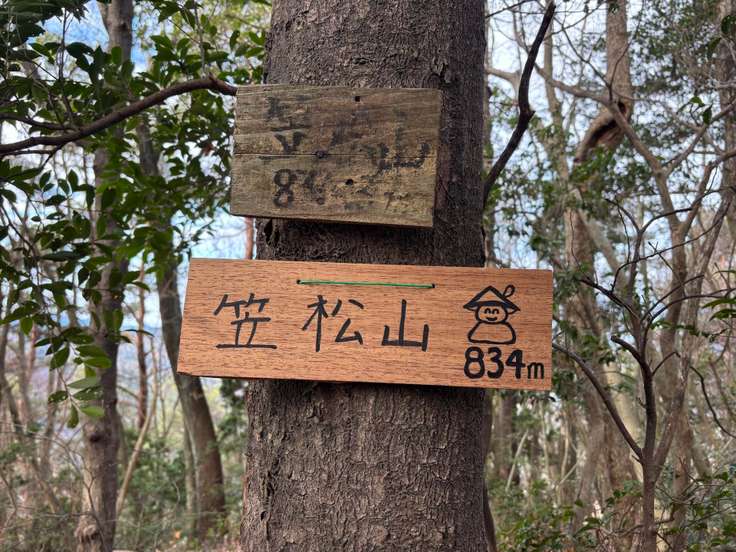 笠 山
83
笠松山
834m